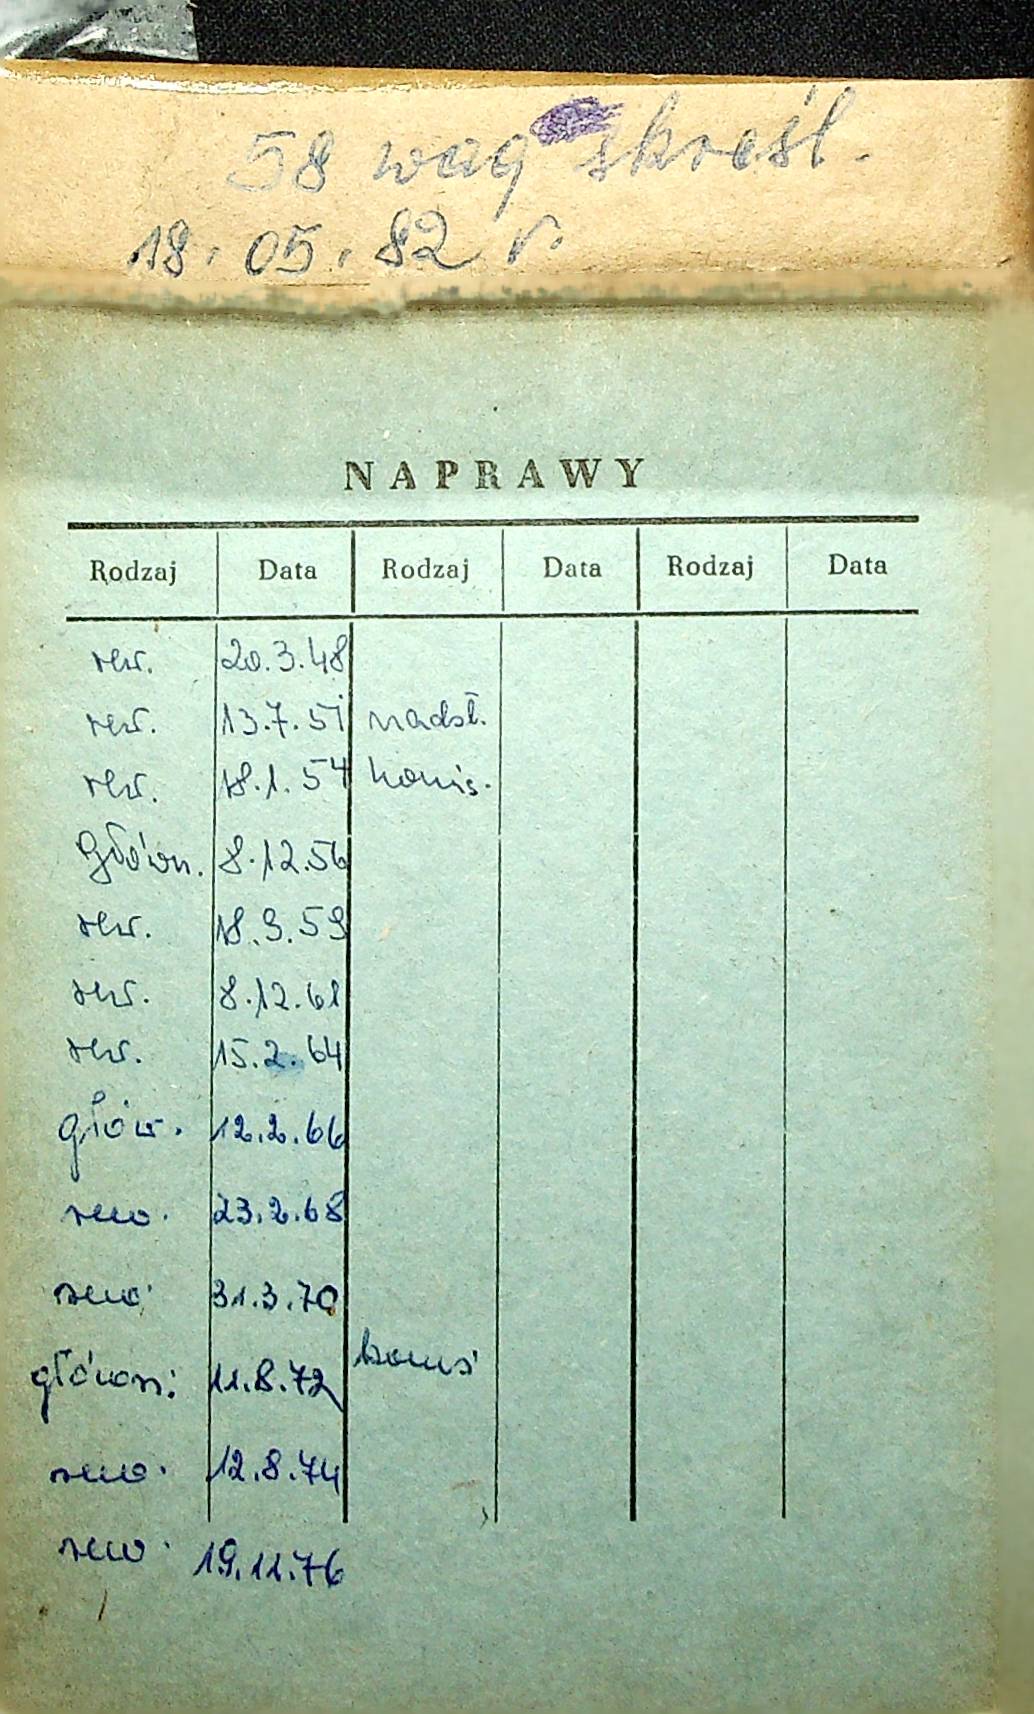 58 wag skreśl.
18.05.82 r.
NAPRAWY
Rodzaj Data Rodzaj Data Rodzaj Data
rew. 20.3.48
rew. 13.7.51 nadst.
rew. 18.1.54 komis.
główn. 8.12.56
rew. 18.9.59
rew. 8.12.61
rew. 15.2.64
głów. 12.2.66
rew. 23.2.68
rew. 31.3.70
główn. 11.8.72 komis
rew. 12.8.74
rew. 19.11.76